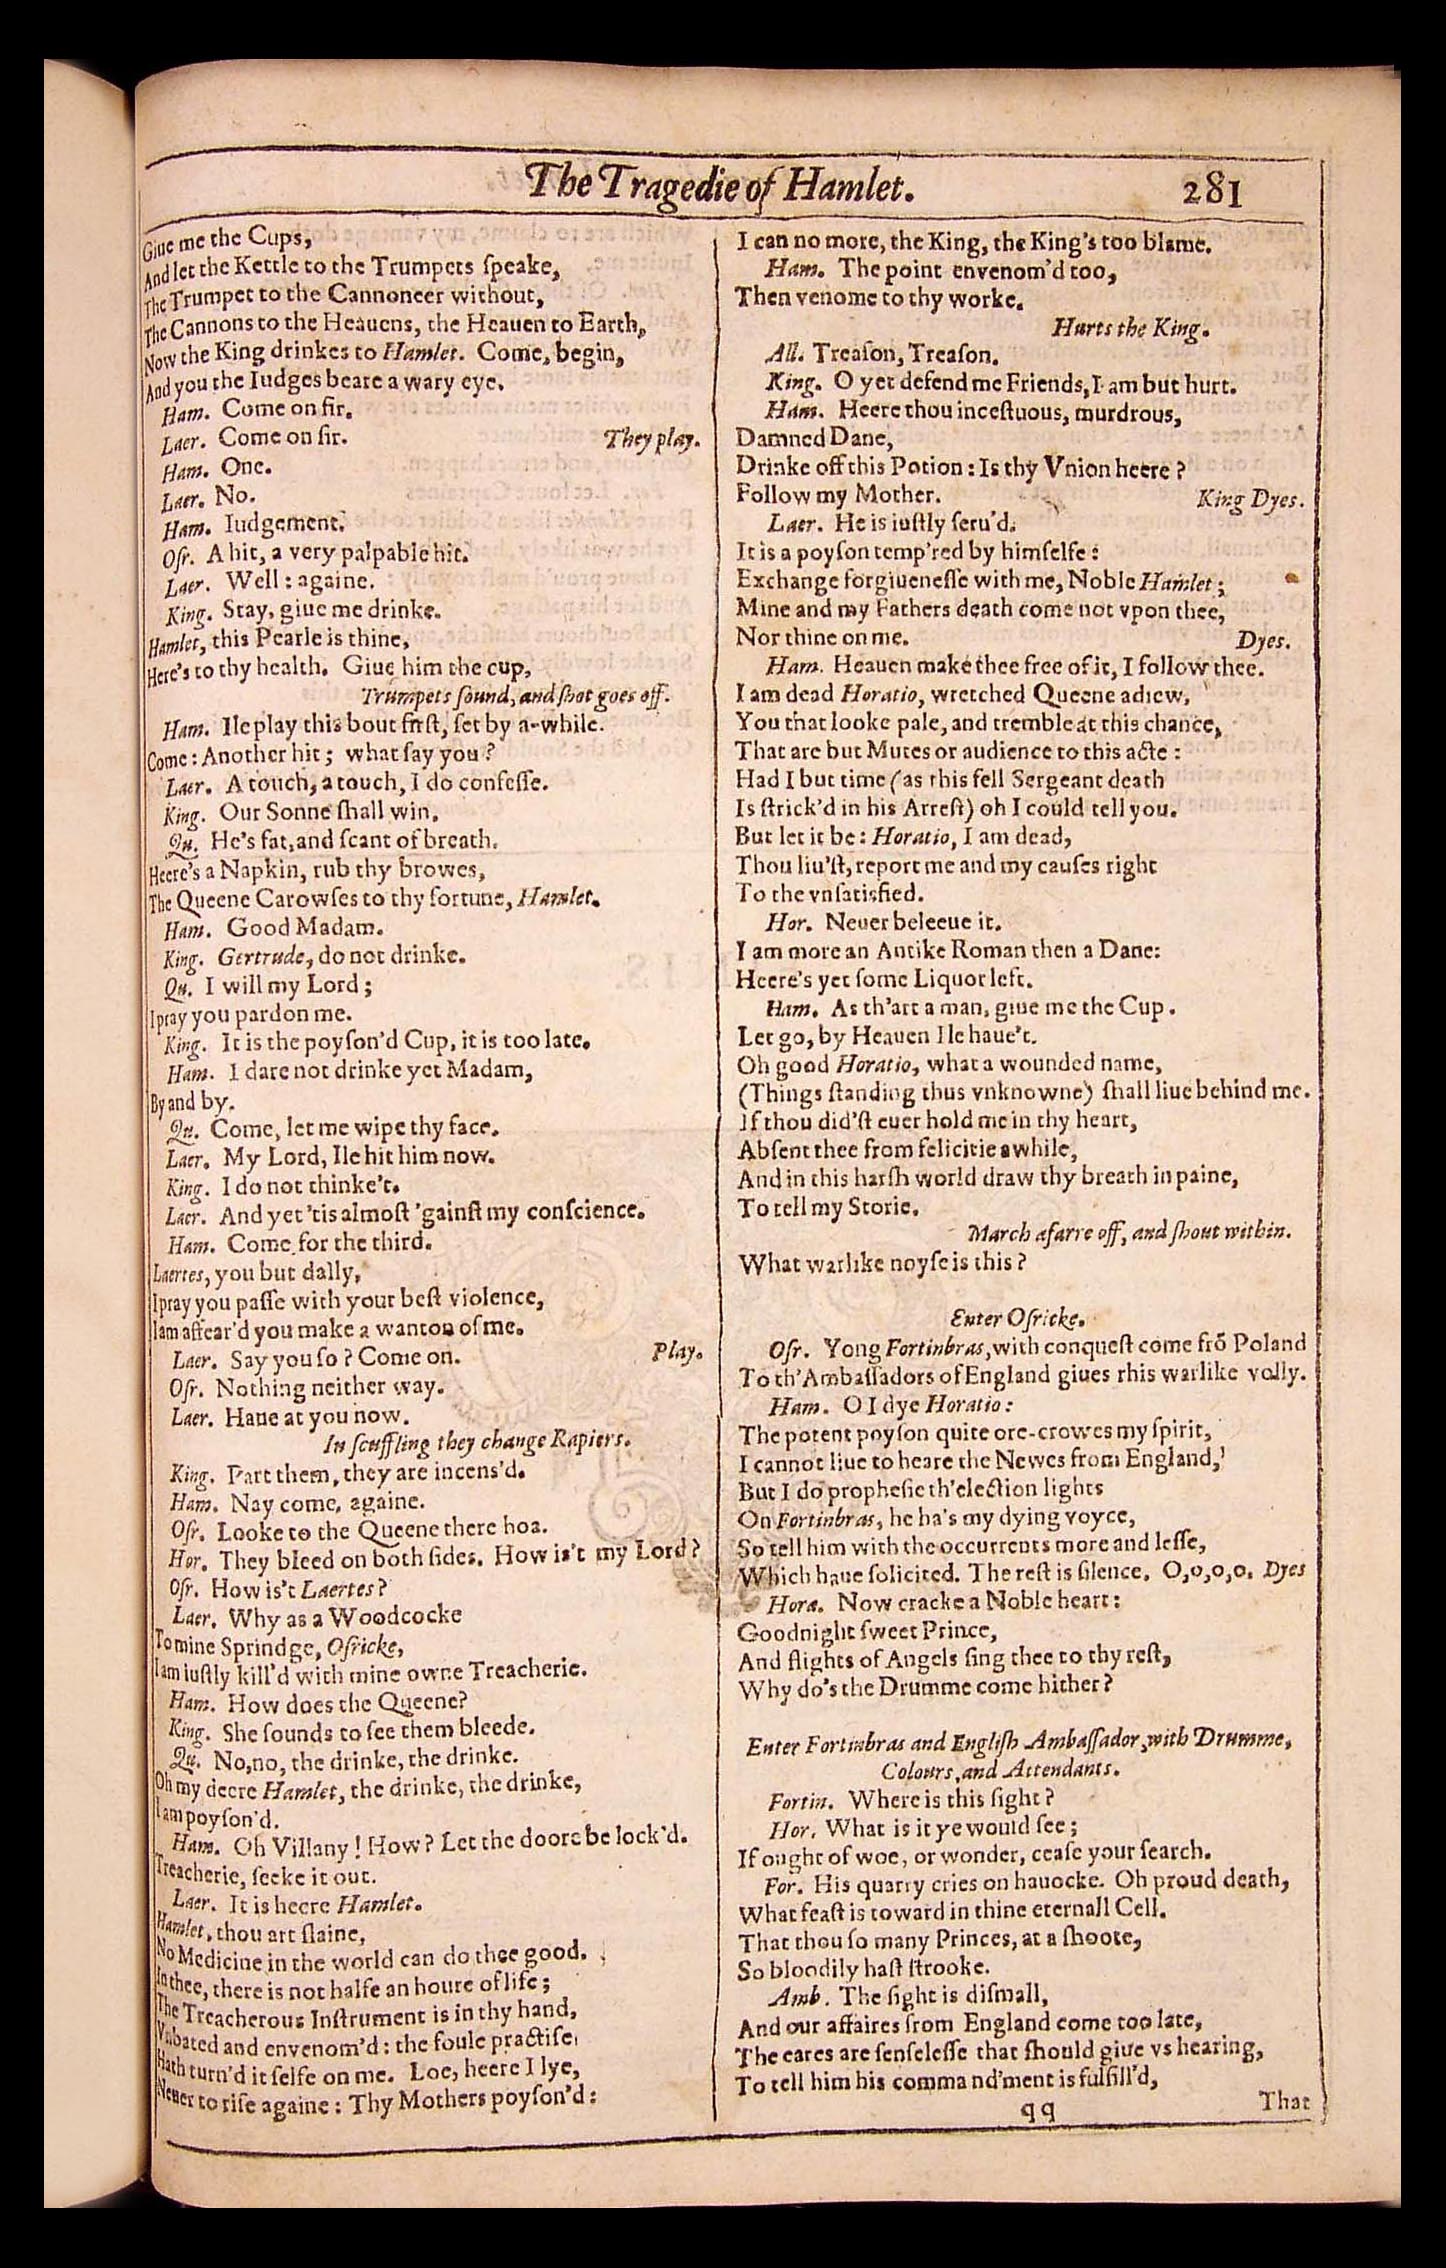 The Tragedie of Hamlet. 281
Giue me the Cups,
And let the Kettle to the Trumpets ſpeake,
The Trumpet to the Cannoneer without,
The Cannons to the Heauens, the Heauen to Earth,
Now the King drinkes to Hamlet. Come, begin,
And you the Iudges beare a wary eye.
Ham. Come on ſir.
Laer. Come on ſir. They play.
Ham. One.
Laer. No.
Ham. Iudgement.
Oſr. A hit, a very palpable hit.
Laer. Well: againe.
King. Stay, giue me drinke.
Hamlet, this Pearle is thine,
Here's to thy health. Giue him the cup,
Trumpets ſound, and ſhot goes off.
Ham. Ile play this bout firſt, ſet by a-while.
Come: Another hit; what ſay you?
Laer. A touch, a touch, I do confeſſe.
King. Our Sonne ſhall win.
Qu. He's fat, and ſcant of breath.
Heere's a Napkin, rub thy browes,
The Queene Carowſes to thy fortune, Hamlet.
Ham. Good Madam.
King. Gertrude, do not drinke.
Qu. I will my Lord;
I pray you pardon me.
King. It is the poyſon'd Cup, it is too late.
Ham. I dare not drinke yet Madam,
By and by.
Qu. Come, let me wipe thy face.
Laer. My Lord, Ile hit him now.
King. I do not thinke't.
Laer. And yet 'tis almoſt 'gainſt my conſcience.
Ham. Come for the third.
Laertes, you but dally,
I pray you paſſe with your beſt violence,
I am affear'd you make a wanton of me.
Laer. Say you ſo? Come on. Play.
Oſr. Nothing neither way.
Laer. Haue at you now.
In ſcuffling they change Rapiers.
King. Part them, they are incens'd.
Ham. Nay come, againe.
Oſr. Looke to the Queene there hoa.
Hor. They bleed on both ſides. How is't my Lord?
Oſr. How is't Laertes?
Laer. Why as a Woodcocke
To mine Sprindge, Oſricke,
I am iuſtly kill'd with mine owne Treacherie.
Ham. How does the Queene?
King. She ſounds to ſee them bleede.
Qu. No, no, the drinke, the drinke.
Oh my deere Hamlet, the drinke, the drinke,
I am poyſon'd.
Ham. Oh Villany! How? Let the doore be lock'd.
Treacherie, ſeeke it out.
Laer. It is heere Hamlet.
Hamlet, thou art ſlaine,
No Medicine in the world can do thee good.
In thee, there is not halfe an houre of life;
The Treacherous Inſtrument is in thy hand,
Vnbated and envenom'd: the foule practiſe
Hath turn'd it ſelfe on me. Loe, heere I lye,
Neuer to riſe againe: Thy Mothers poyſon'd:
I can no more, the King, the King's too blame.
Ham. The point envenom'd too,
Then venome to thy worke.
Hurts the King.
All. Treaſon, Treaſon.
King. O yet defend me Friends, I am but hurt.
Ham. Heere thou inceſtuous, murdrous,
Damned Dane,
Drinke off this Potion: Is thy Vnion heere?
Follow my Mother. King Dyes.
Laer. He is iuſtly ſeru'd.
It is a poyſon temp'red by himſelfe:
Exchange forgiueneſſe with me, Noble Hamlet;
Mine and my Fathers death come not vpon thee,
Nor thine on me. Dyes.
Ham. Heauen make thee free of it, I follow thee.
I am dead Horatio, wretched Queene adiew,
You that looke pale, and tremble at this chance,
That are but Mutes or audience to this acte:
Had I but time (as this fell Sergeant death
Is ſtrick'd in his Arreſt) oh I could tell you.
But let it be: Horatio, I am dead,
Thou liu'ſt, report me and my cauſes right
To the vnſatisfied.
Hor. Neuer beleeue it.
I am more an Antike Roman then a Dane:
Heere's yet ſome Liquor left.
Ham. As th'art a man, giue me the Cup.
Let go, by Heauen Ile haue't.
Oh good Horatio, what a wounded name,
(Things ſtanding thus vnknowne) ſhall liue behind me.
If thou did'ſt euer hold me in thy heart,
Abſent thee from felicitie awhile,
And in this harſh world draw thy breath in paine,
To tell my Storie.
March afarre off, and ſhout within.
What warlike noyſe is this?
Enter Oſricke.
Oſr. Yong Fortinbras, with conqueſt come frō Poland
To th'Ambaſſadors of England giues rhis warlike volly.
Ham. O I dye Horatio:
The potent poyſon quite ore-crowes my ſpirit,
I cannot liue to heare the Newes from England,
But I do propheſie th'election lights
On Fortinbras, he ha's my dying voyce,
So tell him with the occurrents more and leſſe,
Which haue ſolicited. The reſt is ſilence. O,o,o,o. Dyes
Hora. Now cracke a Noble heart:
Goodnight ſweet Prince,
And flights of Angels ſing thee to thy reſt,
Why do's the Drumme come hither?
Enter Fortinbras and Engliſh Ambaſſador, with Drumme,
Colours, and Attendants.
Fortin. Where is this ſight?
Hor. What is it ye would ſee;
If ought of woe, or wonder, ceaſe your ſearch.
For. His quarry cries on hauocke. Oh proud death,
What feaſt is toward in thine eternall Cell.
That thou ſo many Princes, at a ſhoote,
So bloodily haſt ſtrooke.
Amb. The ſight is diſmall,
And our affaires from England come too late,
The eares are ſenſeleſſe that ſhould giue vs hearing,
To tell him his command'ment is fulfill'd,
qq That